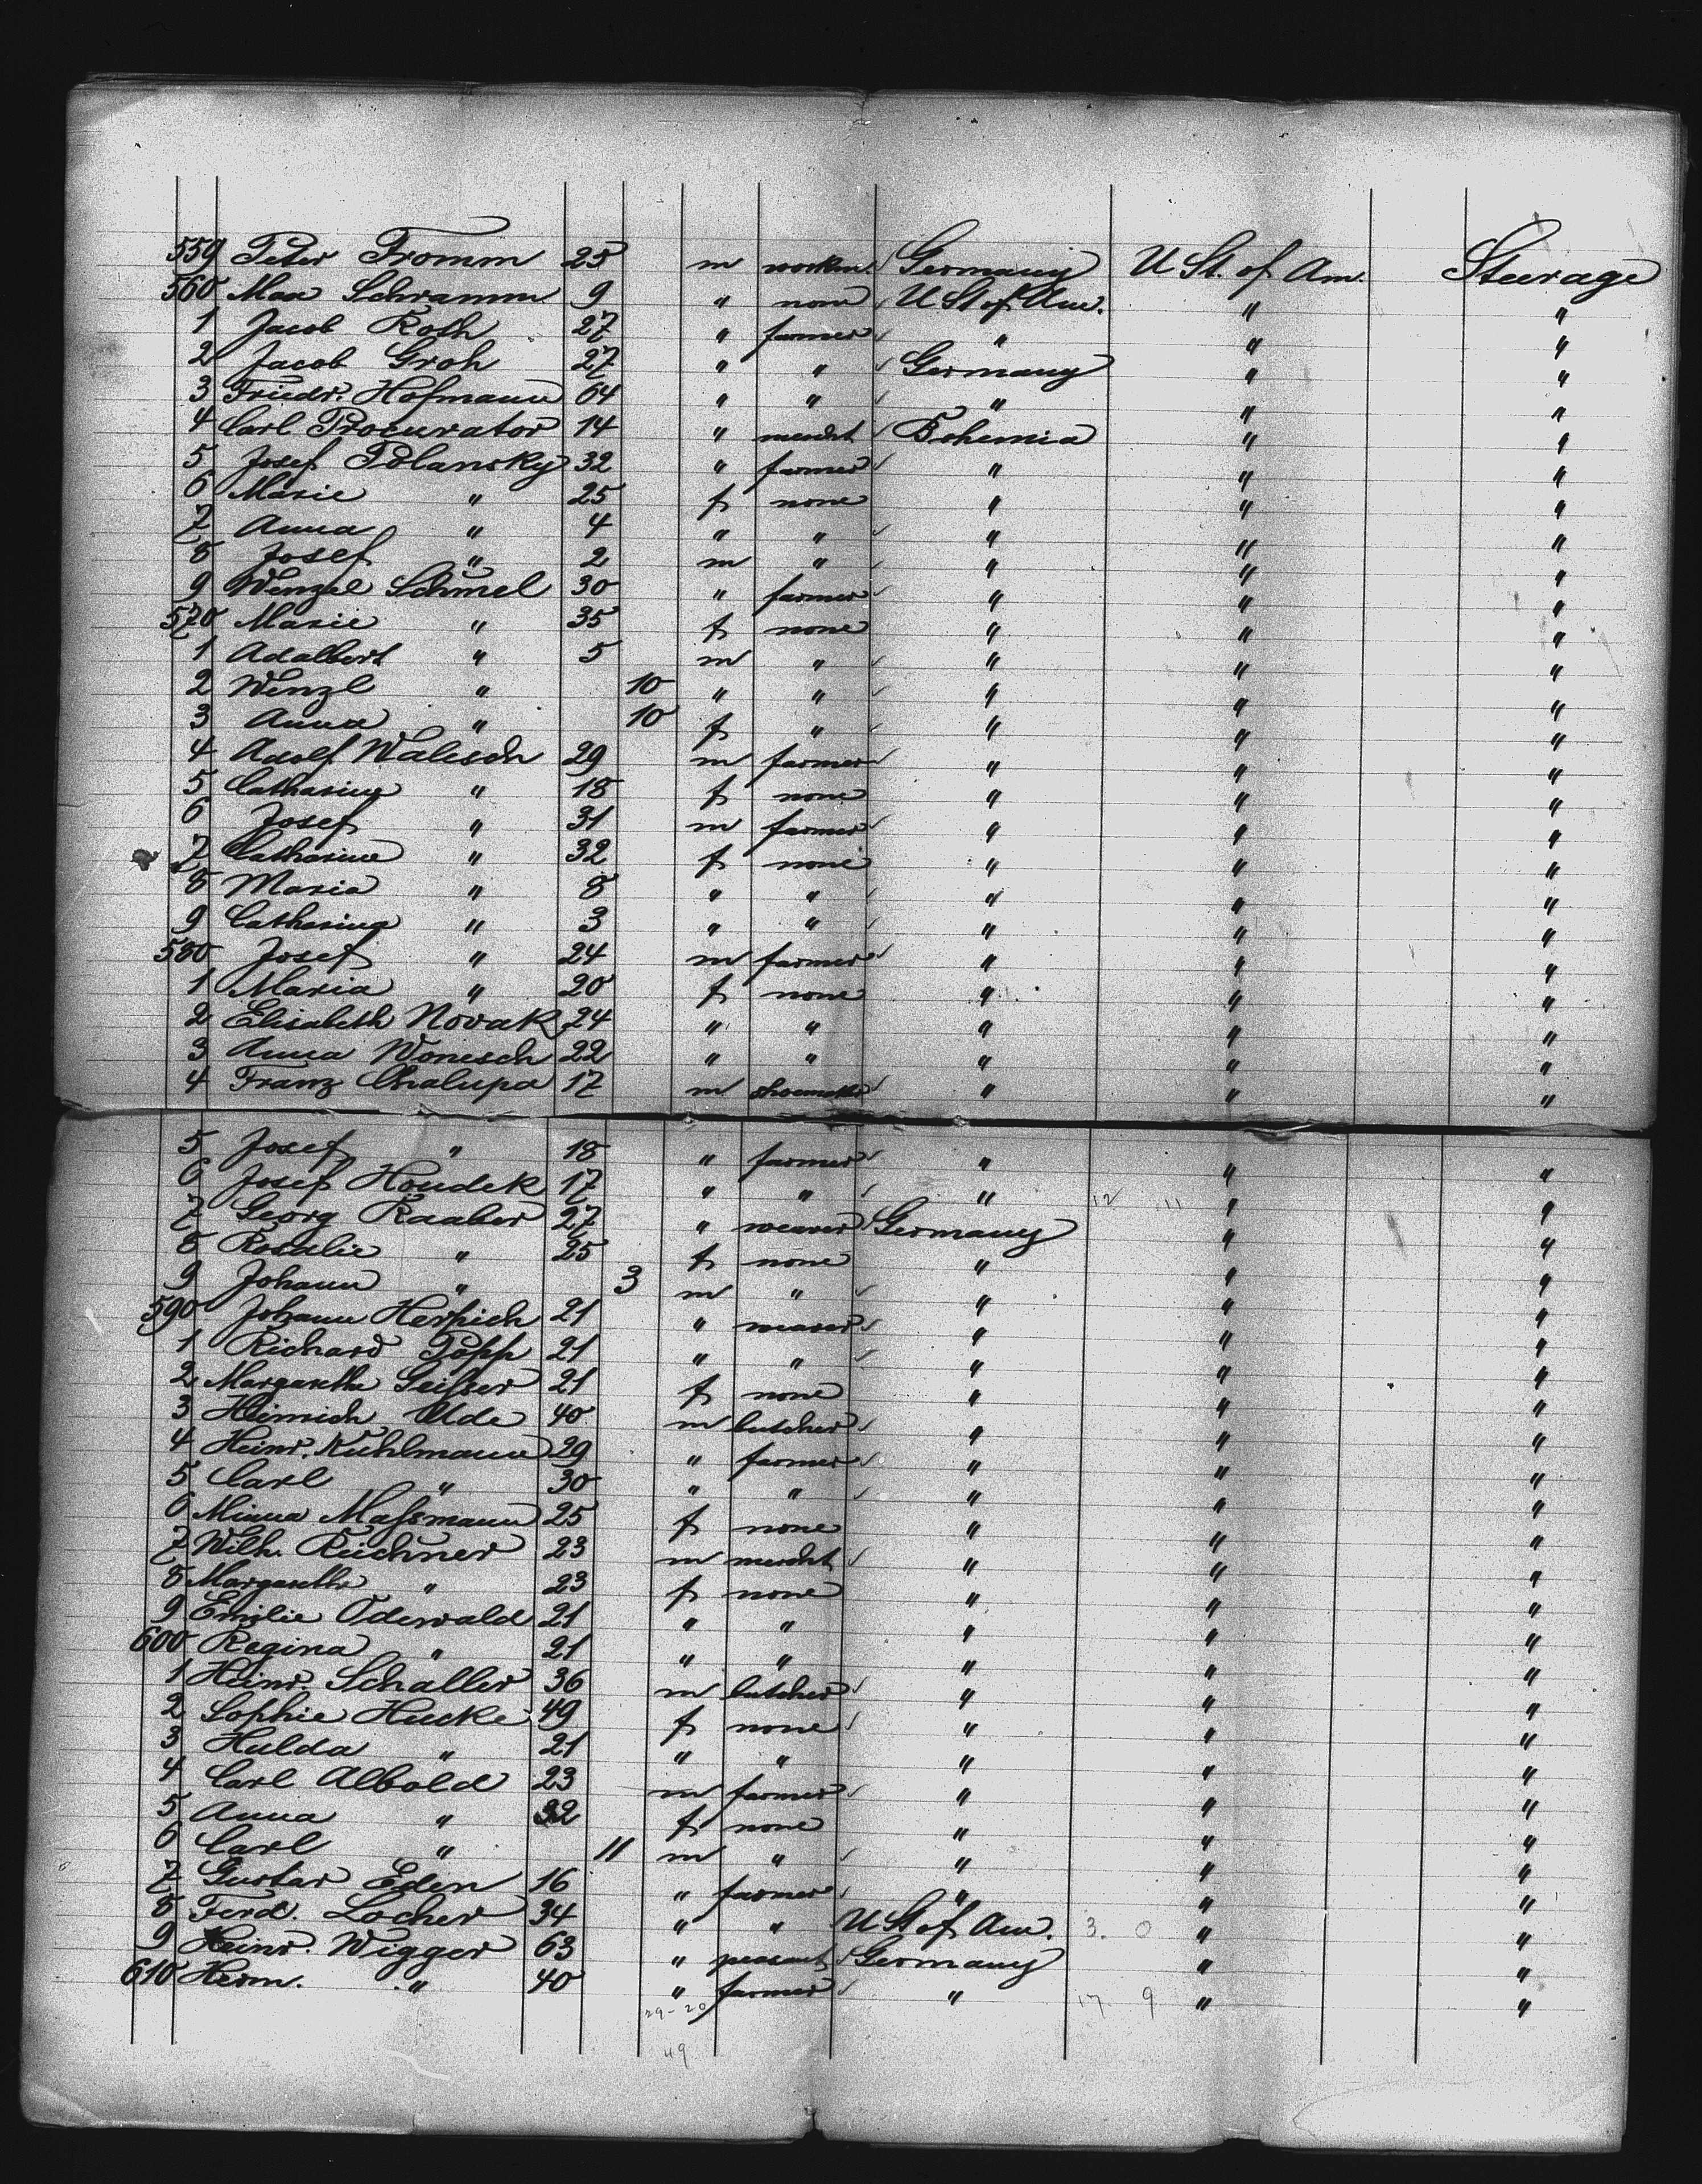 559 Peter Fromm 25 m workm. Germany U St. of Am. Steerage
560 Max Schramm 9 " none U St of Am. " "
1 Jacob Roth 27 " farmer " " "
2 Jacob Groh 27 " " Germany " "
3 Friedr. Hofmann 64 " " " " "
4 Carl Procurator 14 " mercht Bohemia " "
5 Josef Polansky 32 " farmer " " "
6 Marie " 25 f none " " "
7 Anna " 4 " " " " "
8 Josef " 2 m " " " "
9 Wenzel Schimel 30 " farmer " " "
570 Marie " 35 f none " " "
1 Adalbert " 5 m " " " "
2 Wenzl " 10 " " " " "
3 Anna " 10 f " " " "
4 Adolf Walesch 29 m farmer " " "
5 Catharina " 18 f none " " "
6 Josef " 31 m farmer " " "
7 Catharina " 32 f none " " "
8 Maria " 8 " " " " "
9 Catharina " 3 " " " " "
580 Josef " 24 m farmer " " "
1 Maria " 20 f none " " "
2 Elisabeth Novak 24 " " " " "
3 Anna Wonesch 22 " " " " "
4 Franz Chalupa 17 m shoemaker " " "
5 Josef " 18 " farmer " " "
6 Josef Houdek 17 " " " 12 11 " "
7 Georg Raaber 27 " weaver Germany " "
8 Rosalie " 25 f none " " "
9 Johann " 3 m " " " "
590 Johann Herpich 21 " weaver " " "
1 Richard Popp 21 " " " " "
2 Margarethe Geißer 21 f none " " "
3 Heinrich Ude 40 m butcher " " "
4 Heinr. Kuhlmann 29 " farmer " " "
5 Carl " 30 " " " " "
6 Minna Maßmann 25 f none " " "
7 Wilh. Reichner 23 m mercht " " "
8 Margarethe " 23 f none " " "
9 Emilie Odewald 21 " " " " "
600 Regina " 21 " " " " "
1 Heinr. Schaller 36 m butcher " " "
2 Sophie Hucke 49 f none " " "
3 Hulda " 21 " " " " "
4 Carl Albold 23 m farmer " " "
5 Anna " 32 f none " " "
6 Carl " 11 m " " " "
7 Gustav Eden 16 " farmer " " "
8 Ferd. Locher 34 " " U St of Am. 3. 0 " "
9 Heinr. Wigger 63 " peasant Germany " "
610 Herm. " 40 " farmer " 17 9 " "
29-20
49